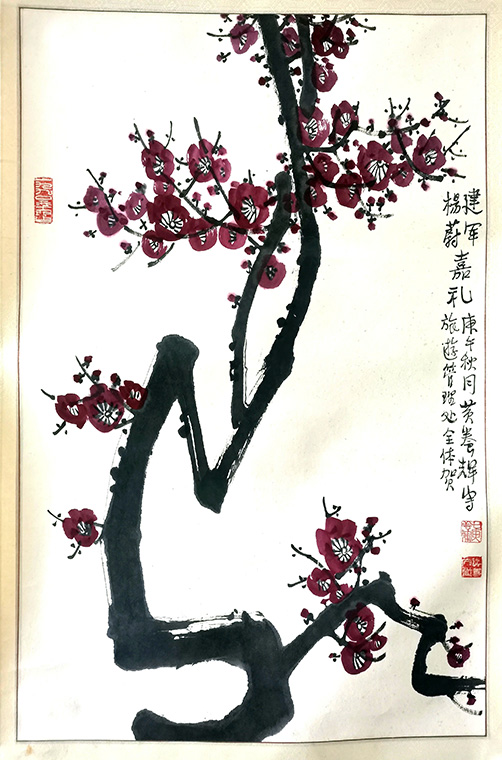 建军
杨蔚
嘉礼
庚午秋月黄养辉写
旅遊管理处全体贺